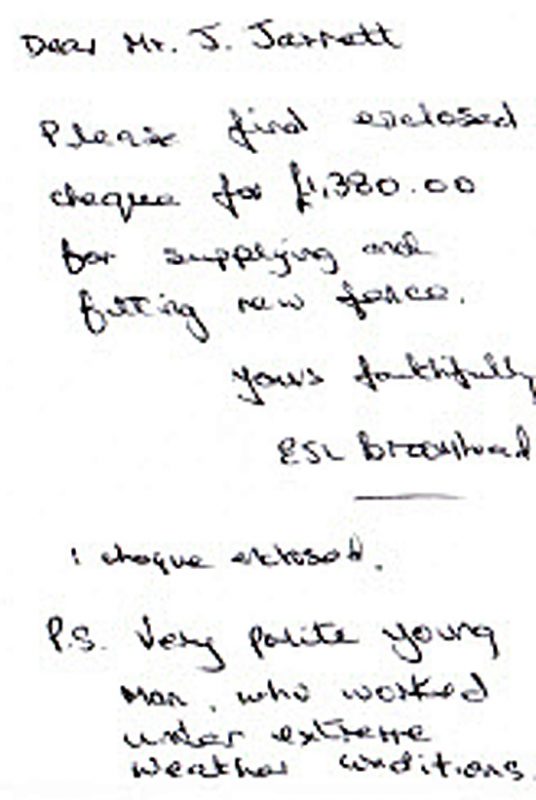 Dear Mr. J. Jarrett
Please find enclosed
cheque for £1,380.00
for supplying and
fitting new fence.
Yours faithfully
ESL
1 cheque enclosed.
P.S. Very polite young
Man, who worked
under extreme
weather conditions.